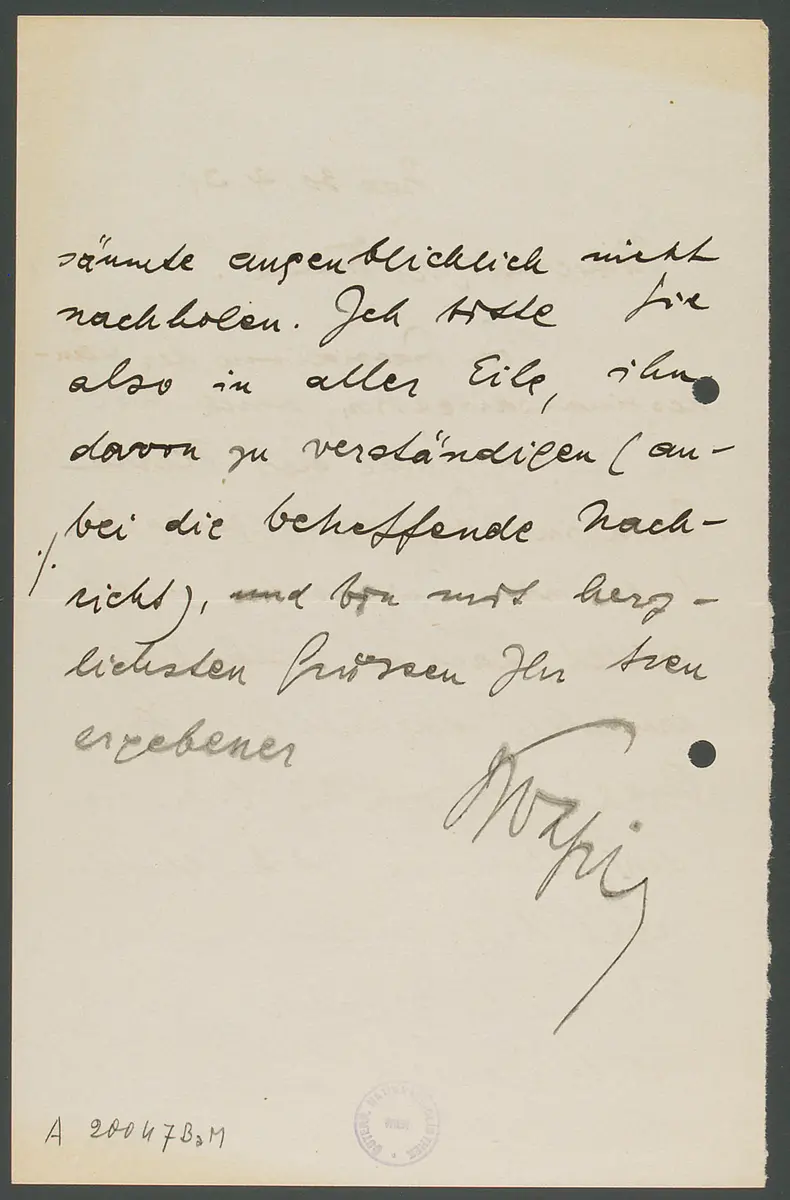 säumte augenblicklich nicht
nachholen. Ich bitte Sie
also in aller Eile, ihn
davon zu verständigen (an-
bei die betreffende Nach-
richt), und bin mit herz-
lichsten Grüssen Ihr treu
ergebener
A 20047 BaM
WIEN